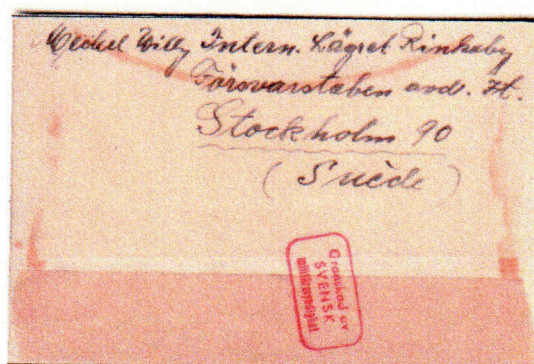 Meckel Willy Intern. Lägret Rinkaby
Försvarstaben avd. Ht.
Stockholm 90
(Suède)
Granskad av
SVENSK
militärmyndighet